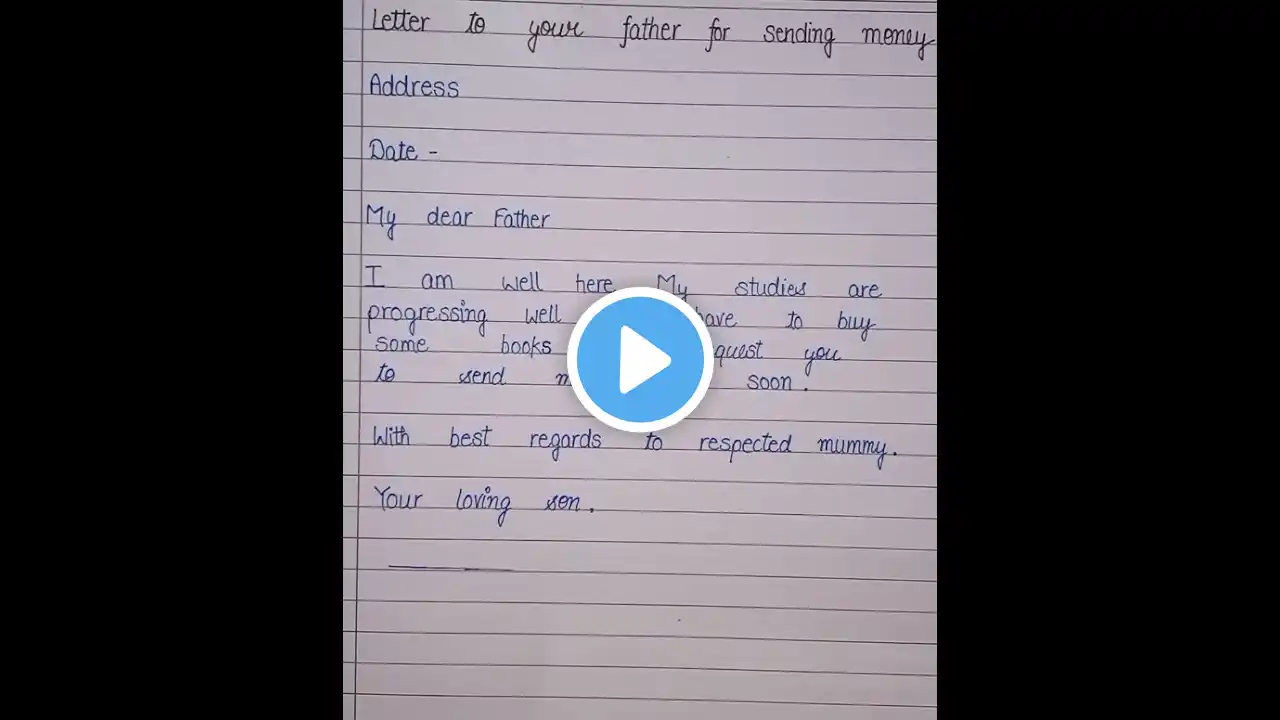 Letter to your father for sending money
Address
Date -
My dear Father
I am well here My studies are
progressing well have to buy
some books you
to send soon.
With best regards to respected mummy.
Your loving son.